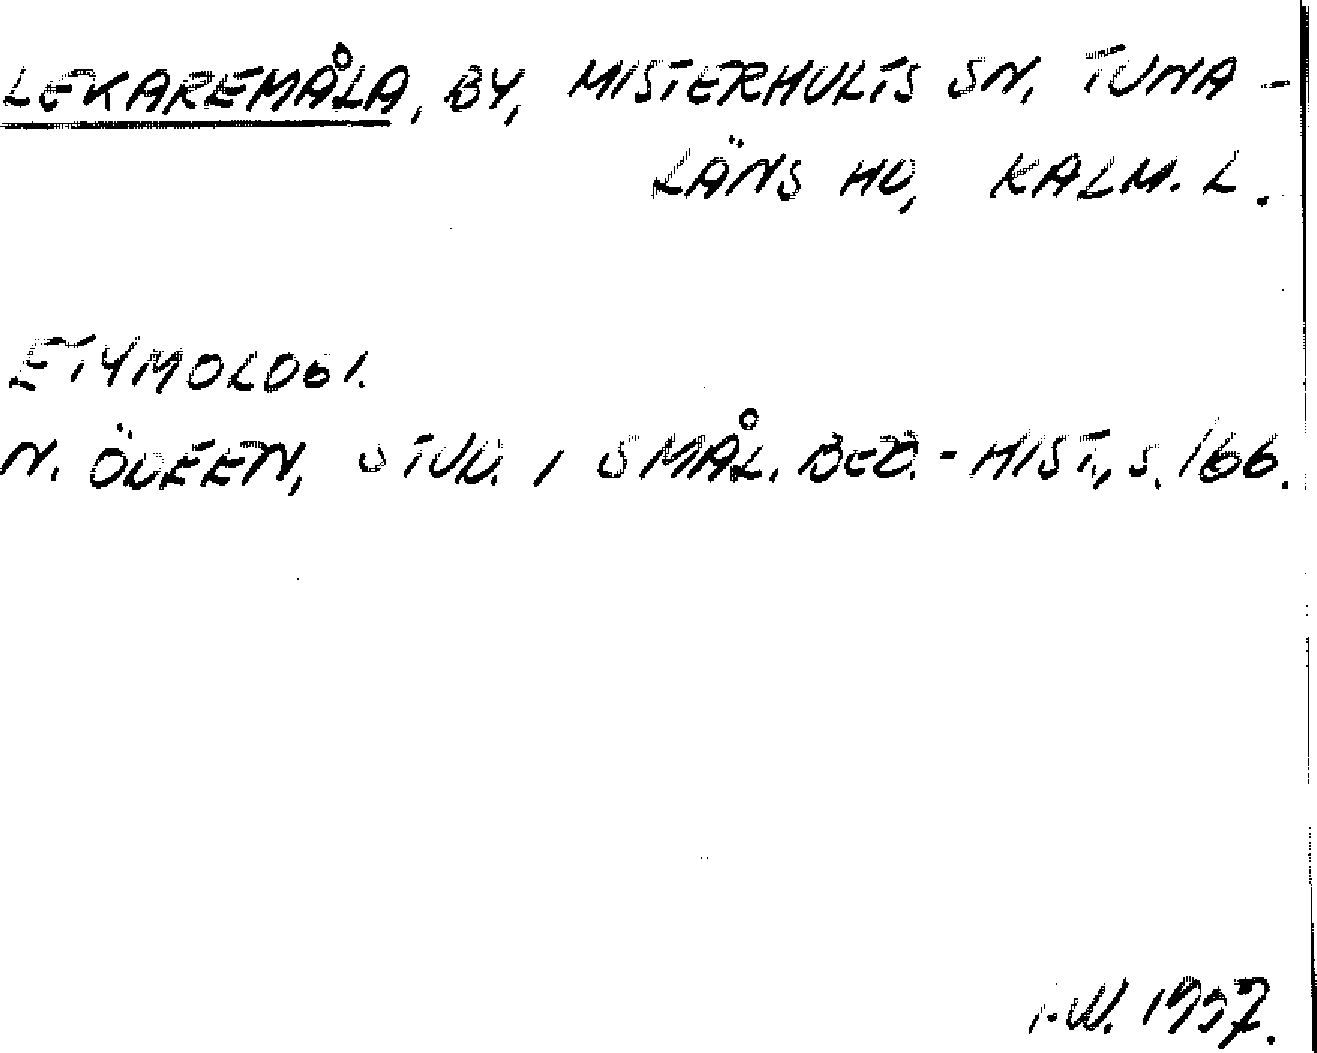 LEKAREMÅLA, BY, MISTERHULTS SN, TUNA-
LÄNS HD, KALM. L.
ETYMOLOGI.
N. ÖDEEN, STUD. I SMÅL. BEB.-HIST., S. 166.
1957.